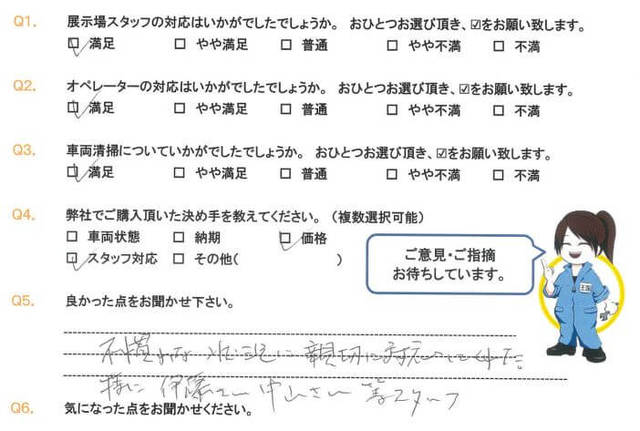 Q1. 展示場スタッフの対応はいかがでしたでしょうか。 おひとつお選び頂き、☑をお願い致します。
☑ 満足 □ やや満足 □ 普通 □ やや不満 □ 不満
Q2. オペレーターの対応はいかがでしたでしょうか。 おひとつお選び頂き、☑をお願い致します。
☑ 満足 □ やや満足 □ 普通 □ やや不満 □ 不満
Q3. 車両清掃についていかがでしたでしょうか。 おひとつお選び頂き、☑をお願い致します。
☑ 満足 □ やや満足 □ 普通 □ やや不満 □ 不満
Q4. 弊社でご購入頂いた決め手を教えてください。（複数選択可能）
□ 車両状態 □ 納期 ☑ 価格
☑ スタッフ対応 □ その他( )
ご意見・ご指摘
お待ちしています。
Q5. 良かった点をお聞かせ下さい。
に 親切に対応して
様に 伊藤さん 中山さん 等スタッフ
Q6. 気になった点をお聞かせください。